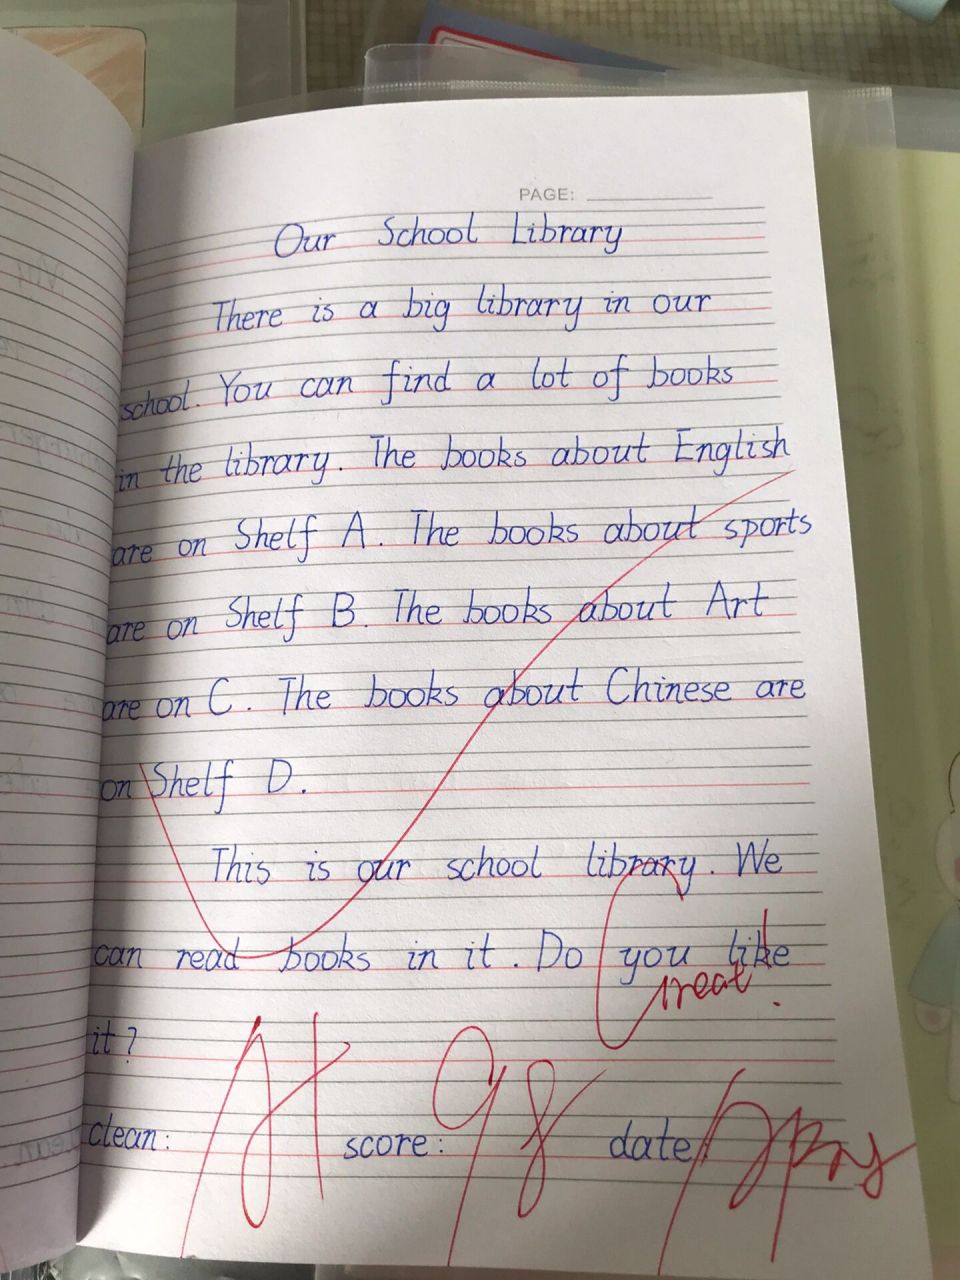 PAGE:
Our School Library
There is a big library in our
school. You can find a lot of books
in the library. The books about English
are on Shelf A. The books about sports
are on Shelf B. The books about Art
are on C. The books about Chinese are
on Shelf D.
This is our school library. We
can read books in it. Do you like
it?
Great!
clean: A+ score: 98 date